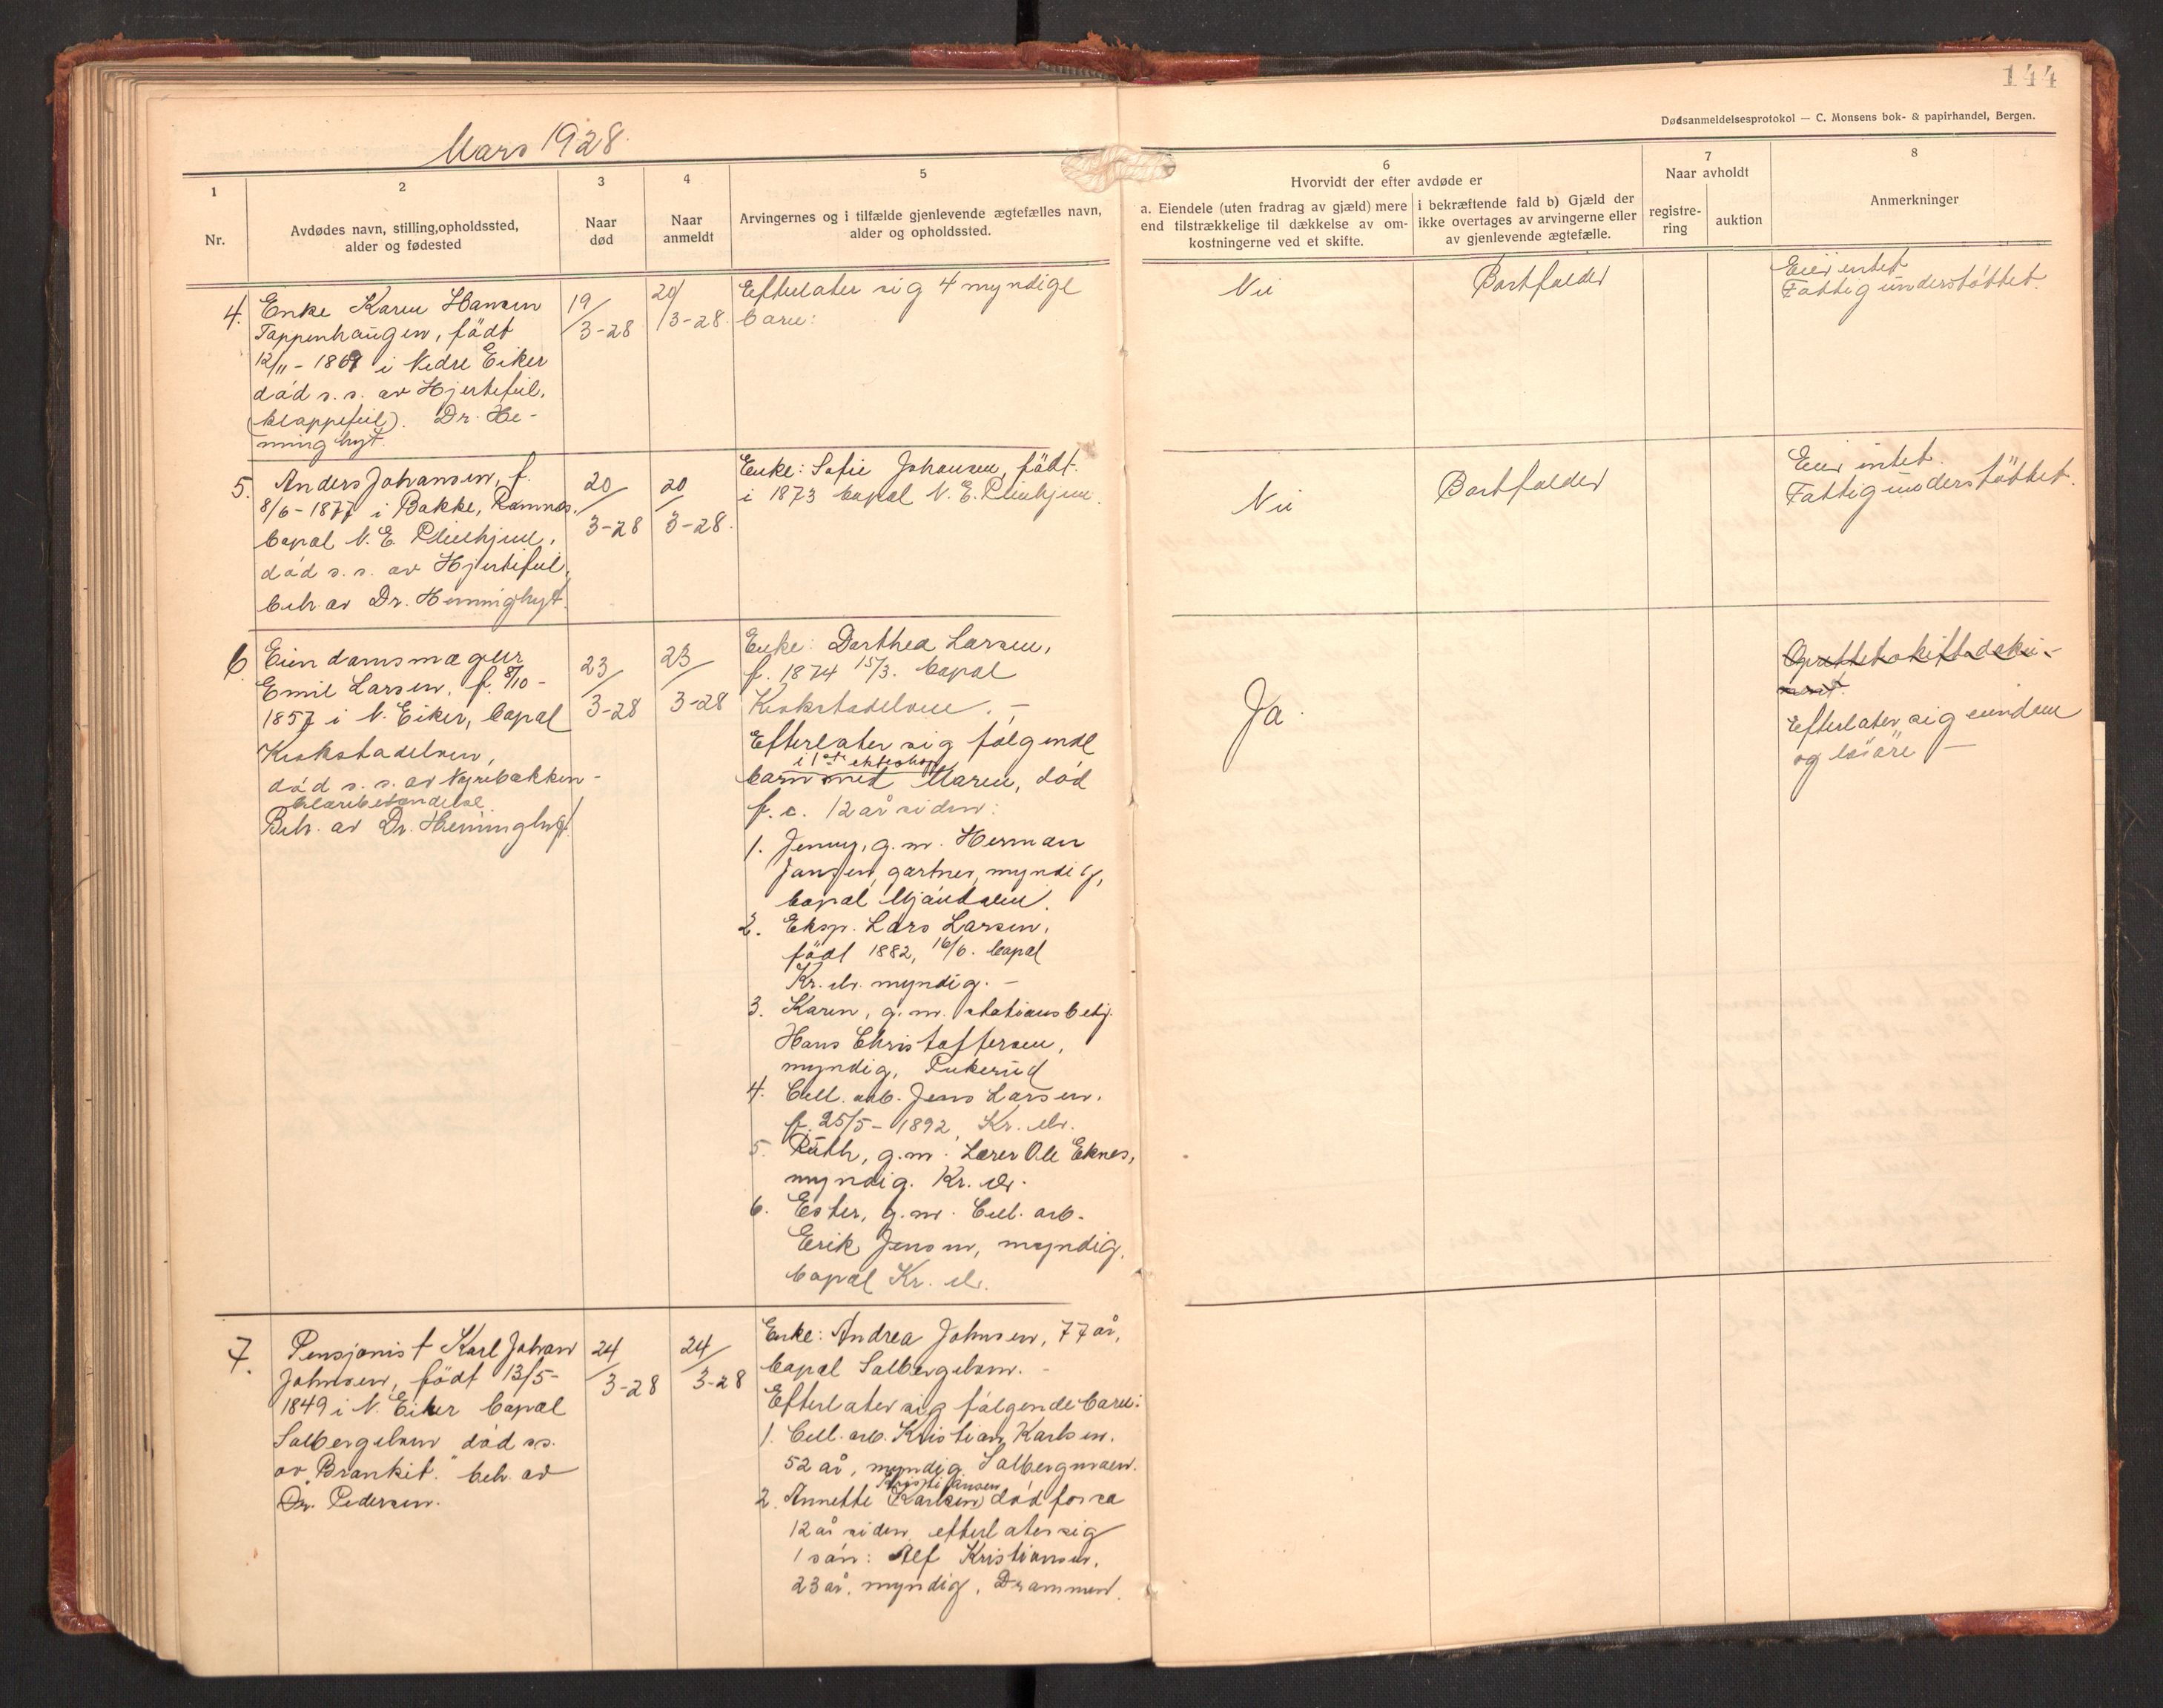 144
Dødsanmeldelsesprotokol — C. Monsens bok- & papirhandel, Bergen.
Mars 1928.
1
Nr.
2
Avdødes navn, stilling, opholdssted,
alder og fødested
3
Naar
død
4
Naar
anmeldt
5
Arvingernes og i tilfælde gjenlevende ægtefælles navn,
alder og opholdssted.
6
Hvorvidt der efter avdøde er
a. Eiendele (uten fradrag av gjæld) mere
end tilstrækkelige til dækkelse av om-
kostningerne ved et skifte.
i bekræftende fald b) Gjæld der
ikke overtages av arvingerne eller
av gjenlevende ægtefælle.
7
Naar avholdt
registre-
ring
auktion
8
Anmerkninger
4.
Enke Karen Hansen
Tappenhaugen, født
12/11-1869 i Nedre Eiker
død s. s. av Hjertefeil.
(klappefeil). Dr. He-
minghyt.
19/3-28
20/3-28.
Efterlater sig 4 myndige
barn:
Nei
Bortfalder
Eier intet
Fattigunderstøttet.
5.
Anders Johansen, f.
8/6-1877 i Bakke, Ramnes.
bopæl N. E. Pleiehjem,
død s. s. av Hjertefeil,
beh. av Dr. Heminghyt.
20/3-28
20/3-28.
Enke: Sofie Johansen, født
i 1873 bopæl N. E. Pleiehjem.
Nei
Bortfalder
Eier intet.
Fattigunderstøttet.
6
Eiendomsmægler
Emil Larsen, f. 8/10-
1857 i N. Eiker, bopæl
Krokstadelven,
død s. s. av Nyrebækken-
Beh. av Dr. Heminghyt.
23/3-28
23/3-28
Enke: Dorthea Larsen,
f. 1874 15/3. bopæl
Krokstadelven. –
Efterlater sig følgende
i 1ste ekteskap
barn med Maren, død
f. c. 12 år siden:
1. Jenny, g. m. Herman
Jansen, gartner, myndig,
bopæl Mjøndalen.
2. Eksp. Lars Larsen,
født 1882, 16/6. bopæl
Kr. elv. myndig. –
3. Karen, g. m. stationsbetj.
Hans Christoffersen,
myndig, Pukerud
4. Cell. arb. Jens Larsen.
f. 25/5-1892, Kr. elv.
5. Ruth, g. m. Lærer Ole Eknes,
myndig. Kr. elv.
6. Ester, g. m. Cell. arb.
Erik Jensen, myndig,
bopæl Kr. elv.
Ja.
Oprettet skiftedoku-
ment.
Efterlater sig eiendom
og løsøre –
7.
Pensjonist Karl Johan
Johnsen, født 13/5-
1849 i N. Eiker bopæl
Solbergelven død s.s.
av "Bronkit." beh. av
Dr. Pedersen.
24/3-28
24/3-28
Enke: Andrea Johnsen, 77 år,
bopæl Solbergelven. –
Efterlater sig følgende barn:
1. Cell. arb. Kristian Karlsen.
52 år, myndig Solbergmoen.
Kristiansen
2. Annette (Karlsen) død for ca
12 år siden efterlater sig
1 søn: Alf Kristiansen,
23 år, myndig, Drammen.